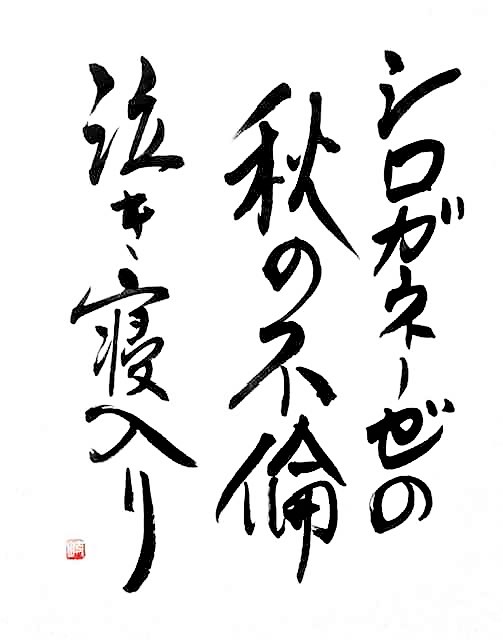 シロガネーゼの
秋の不倫
泣き寝入り